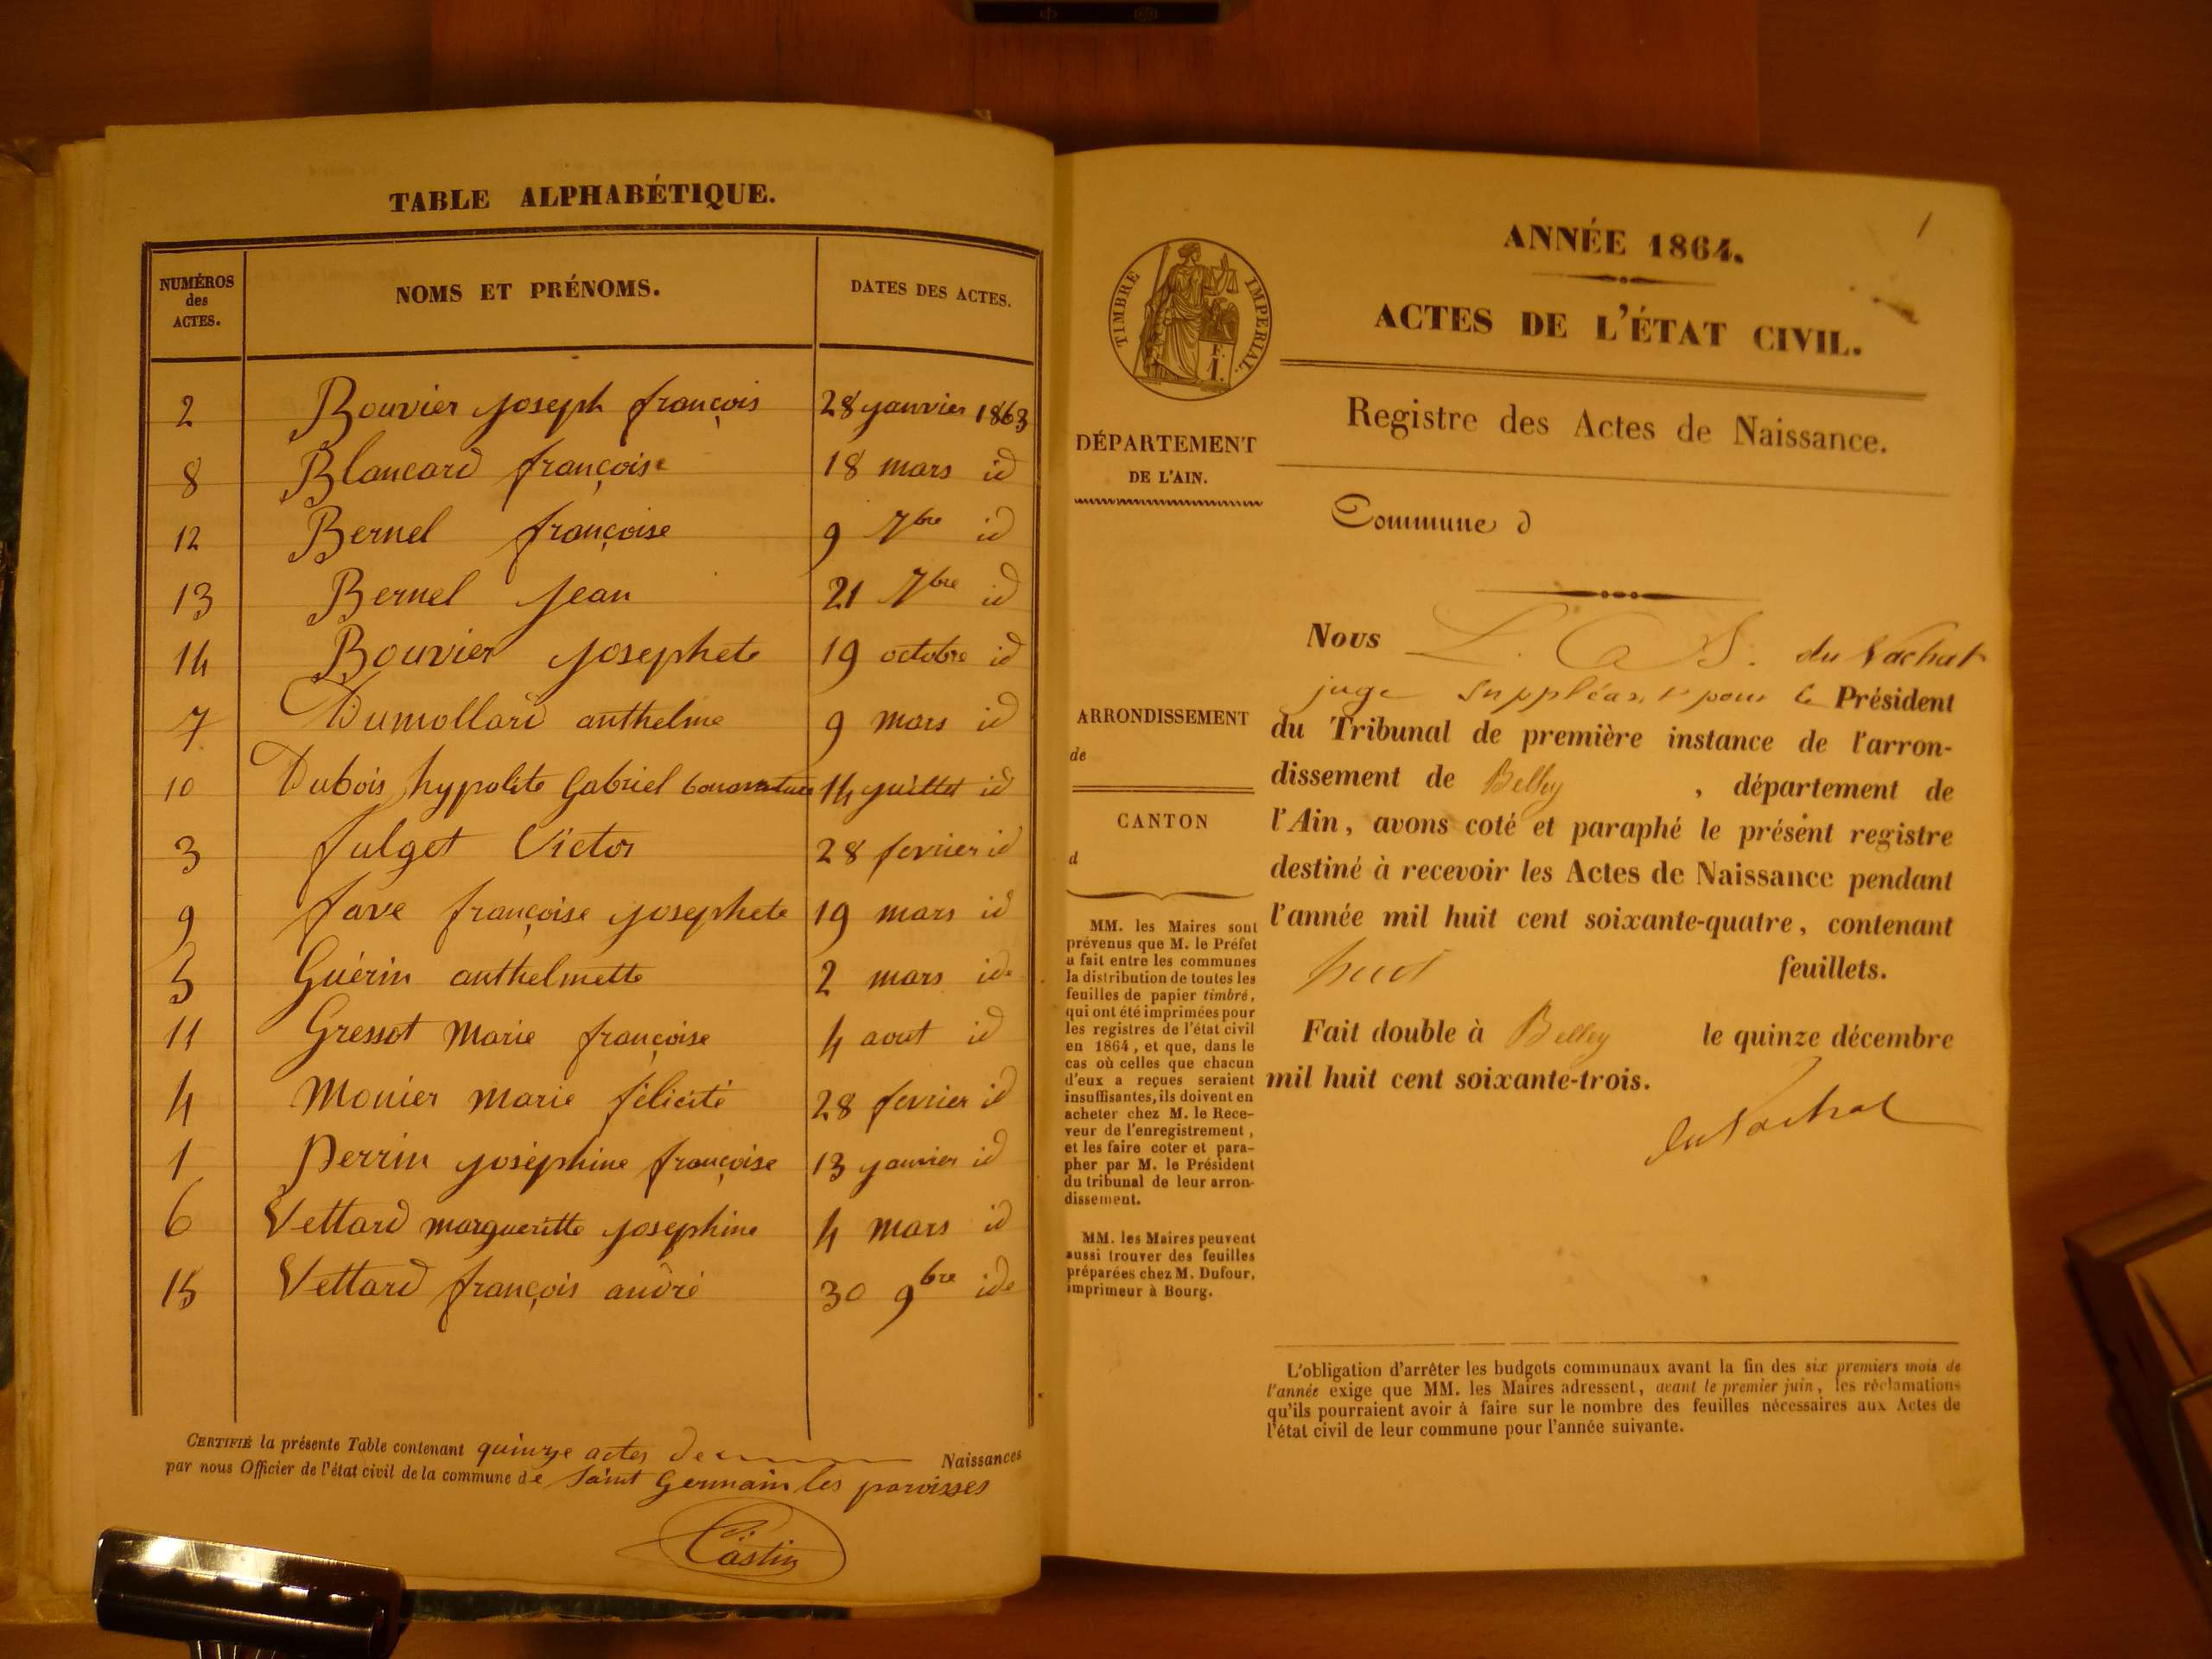 TABLE ALPHABÉTIQUE.
NUMÉROS
des
ACTES.
NOMS ET PRÉNOMS.
DATES DES ACTES.
2 Bouvier Joseph françois 28 janvier 1863
8 Blancard françoise 18 mars id
12 Bernel françoise 9 7bre id
13 Bernel Jean 21 7bre id
14 Bouvier Josephete 19 octobre id
7 Dumollard anthelme 9 mars id
10 Dubois hypolite Gabriel bonaventure 14 juillet id
3 fulget Victor 28 fevrier id
9 fave françoise Josephete 19 mars id
5 Guérin anthelmette 2 mars id
11 Gressot Marie françoise 4 aout id
4 Monier marie félicité 28 fevrier id
1 Perrin joséphine françoise 13 janvier id
6 Vettard margueritte josephine 4 mars id
15 Vettard françois andré 30 9bre id
CERTIFIÉ la présente Table contenant quinze actes de Naissances
par nous Officier de l'état civil de la commune de Saint Germain les paroisses
Castin
1
ANNÉE 1864.
ACTES DE L'ÉTAT CIVIL.
TIMBRE IMPERIAL.
F.
1.
Registre des Actes de Naissance.
DÉPARTEMENT
DE L'AIN.
Commune d
ARRONDISSEMENT
de
CANTON
d
MM. les Maires sont
prévenus que M. le Préfet
a fait entre les communes
la distribution de toutes les
feuilles de papier timbré,
qui ont été imprimées pour
les registres de l'état civil
en 1864, et que, dans le
cas où celles que chacun
d'eux a reçues seraient
insuffisantes, ils doivent en
acheter chez M. le Rece-
veur de l'enregistrement,
et les faire coter et para-
pher par M. le Président
du tribunal de leur arron-
dissement.
MM. les Maires peuvent
aussi trouver des feuilles
préparées chez M. Dufour,
imprimeur à Bourg.
Nous L. C. S. du Lachat
juge suppléant pour le Président
du Tribunal de première instance de l'arron-
dissement de Belley , département de
l'Ain, avons coté et paraphé le présent registre
destiné à recevoir les Actes de Naissance pendant
l'année mil huit cent soixante-quatre, contenant
huit feuillets.
Fait double à Belley le quinze décembre
mil huit cent soixante-trois.
du Lachat
L'obligation d'arrêter les budgets communaux avant la fin des six premiers mois de
l'année exige que MM. les Maires adressent, avant le premier juin, les réclamations
qu'ils pourraient avoir à faire sur le nombre des feuilles nécessaires aux Actes de
l'état civil de leur commune pour l'année suivante.